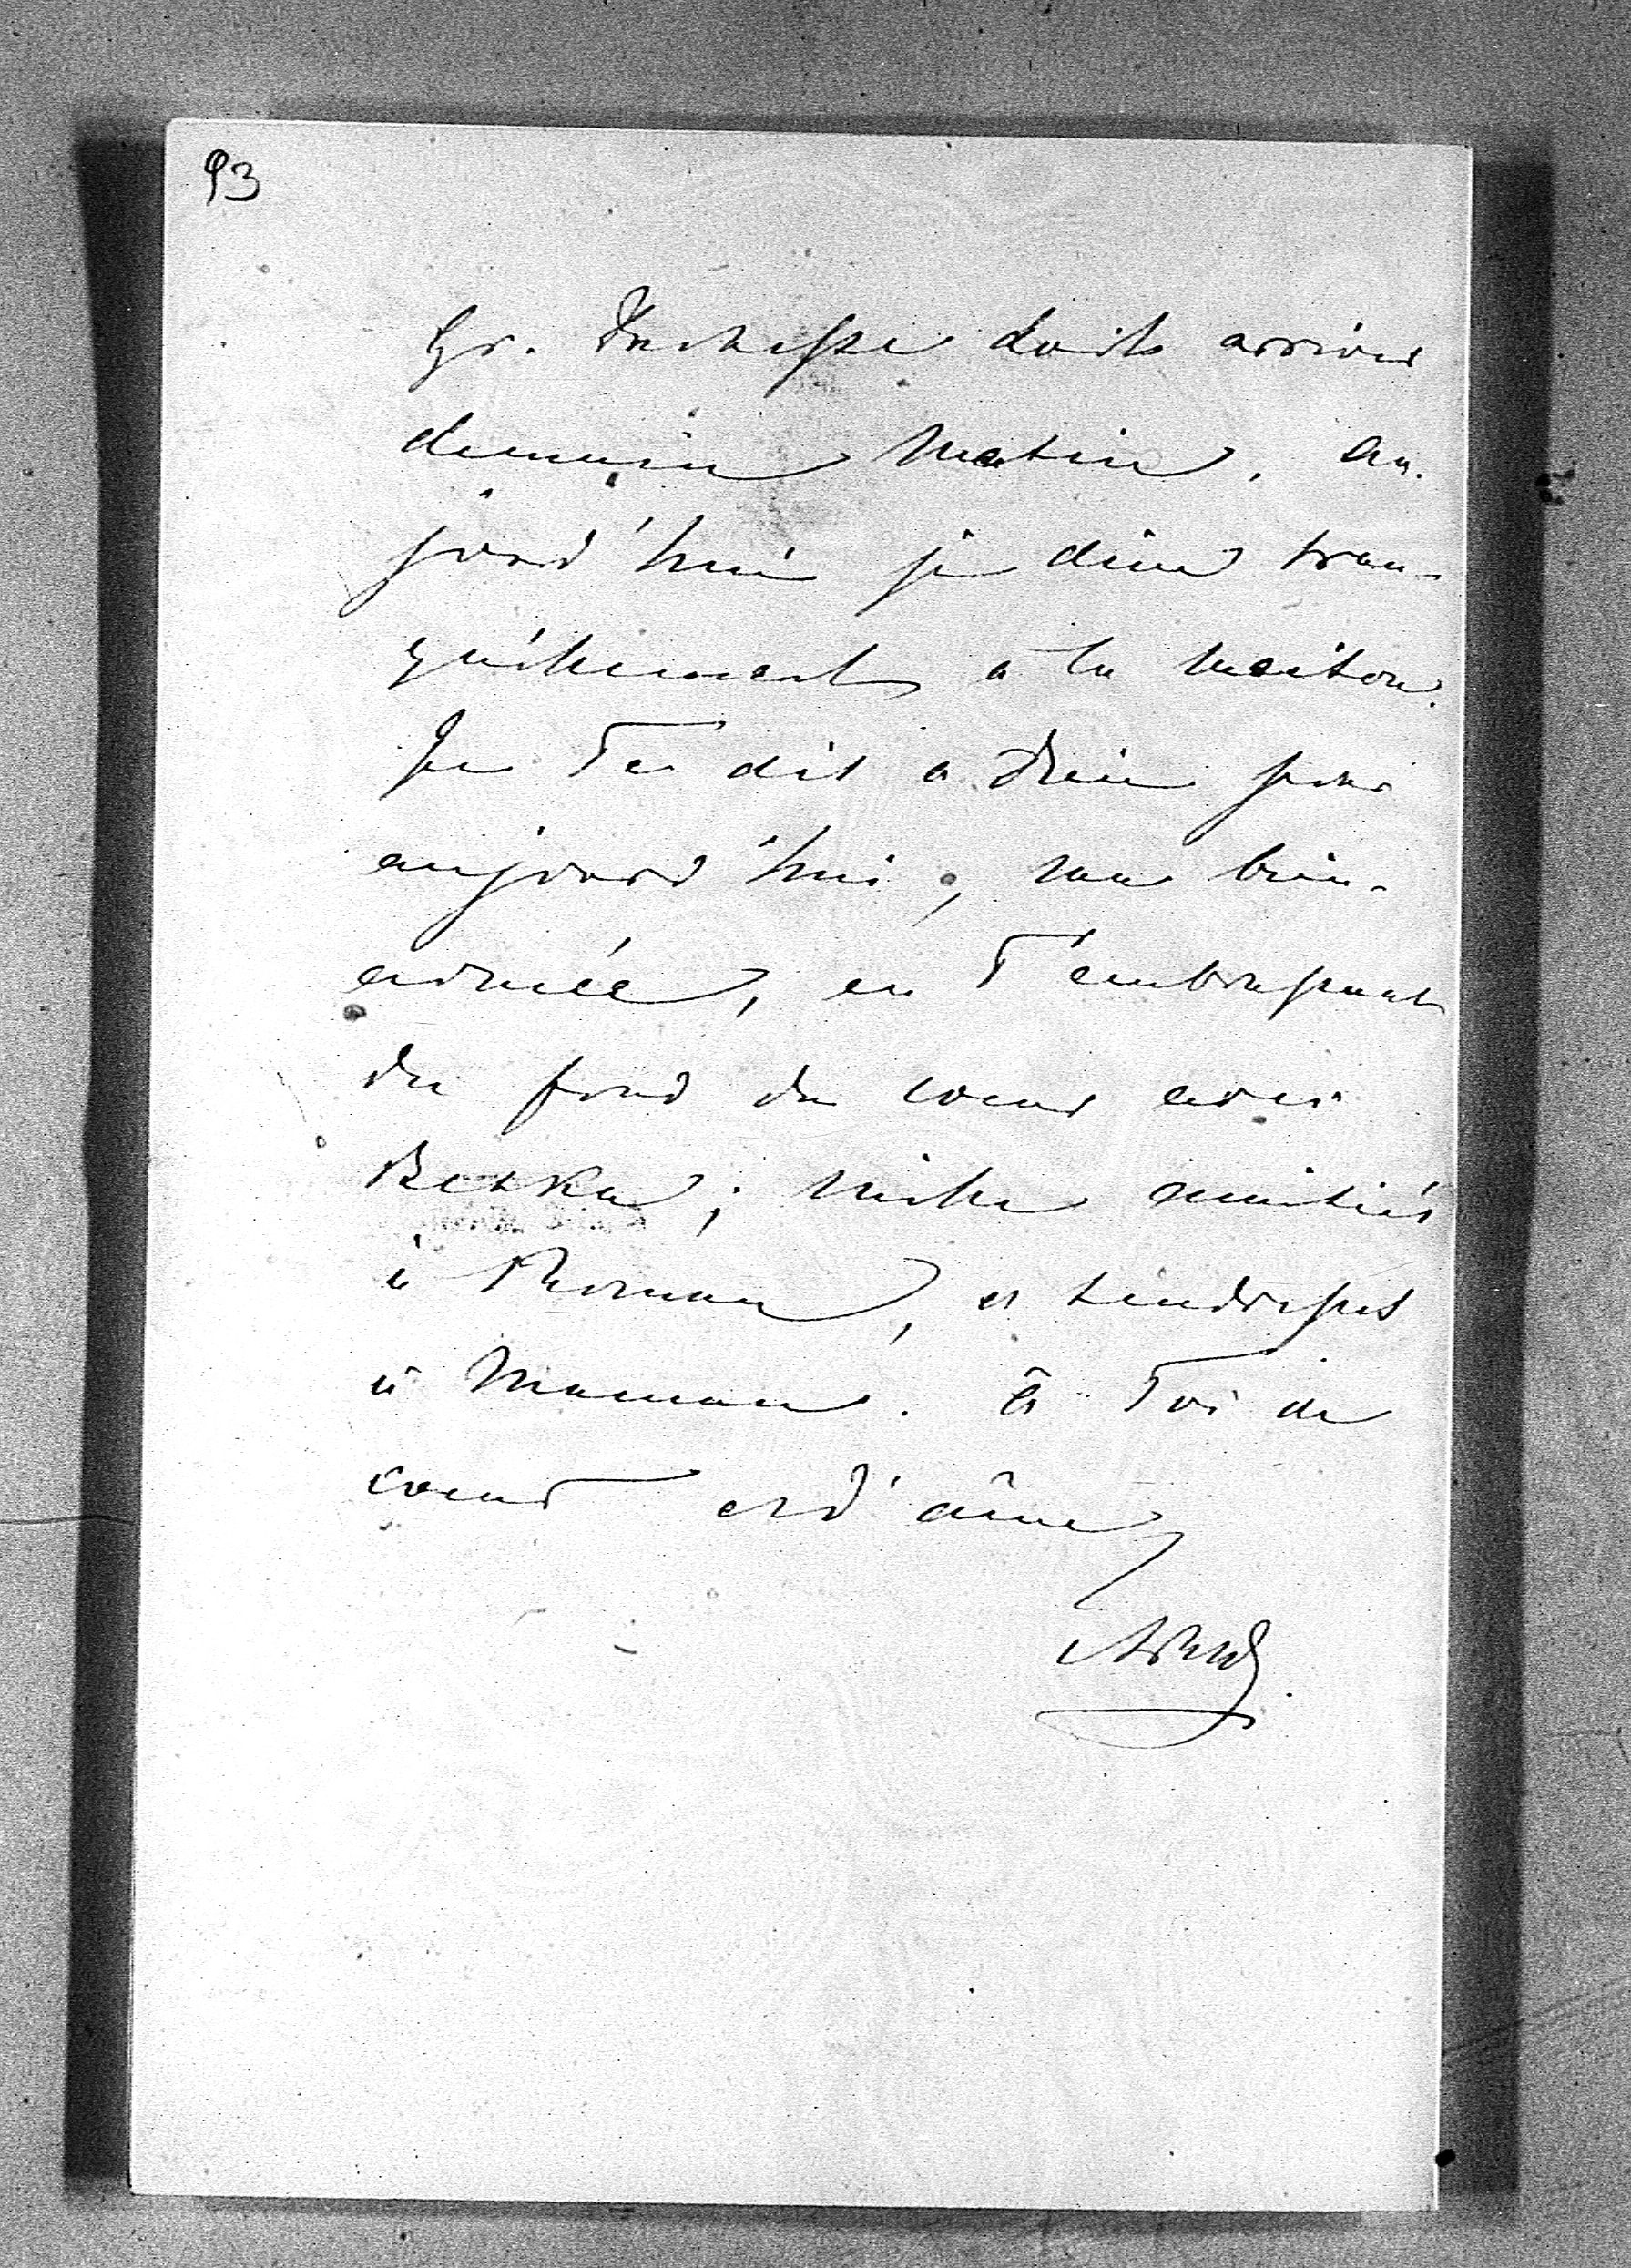 93
Gr. Duchesse doit arriver
demain matin. Au-
jourd'hui je dine tran-
quillement à la maison.
Je Te dis a Dieu pour
aujourd'hui, ma bien-
aimée, en T'embrassant
du fond du coeur avec
Becka; mille amitiés
à Roman, et tendresses
à Maman. à Toi de
coeur et d'âme